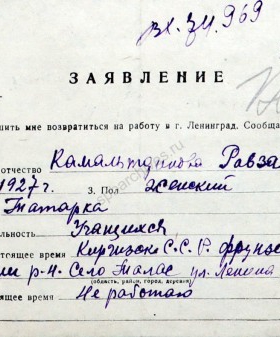 вх. 34.969
ЗАЯВЛЕНИЕ
шить мне возвратиться на работу в г. Ленинград. Сообща
отчество Камальтдинова Равза
1927 г. 3. Пол женский
Татарка
льность Учащихся
стоящее время Киргизск С.С.Р. Фрунзе
р-н. Село Талас ул. Ленина
(область, район, город, деревня)
ящее время Не работаю